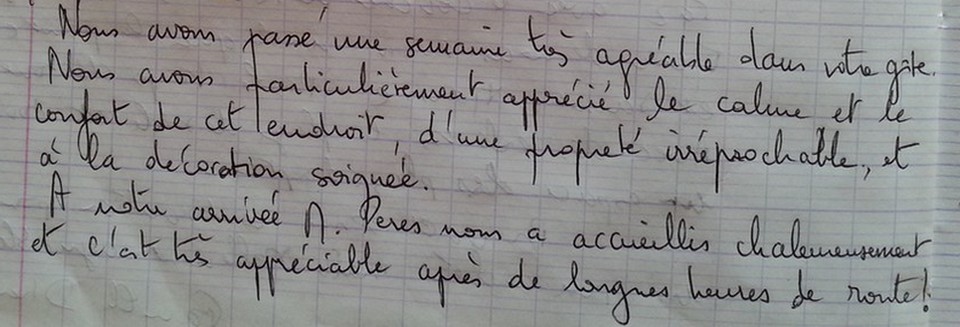 Nous avons passé une semaine très agréable dans votre gîte.
Nous avons particulièrement apprécié le calme et le
confort de cet endroit, d'une propreté irréprochable, et
à la décoration soignée.
A notre arrivée M. Peres nous a accueillis chaleureusement
et c'est très appréciable après de longues heures de route!